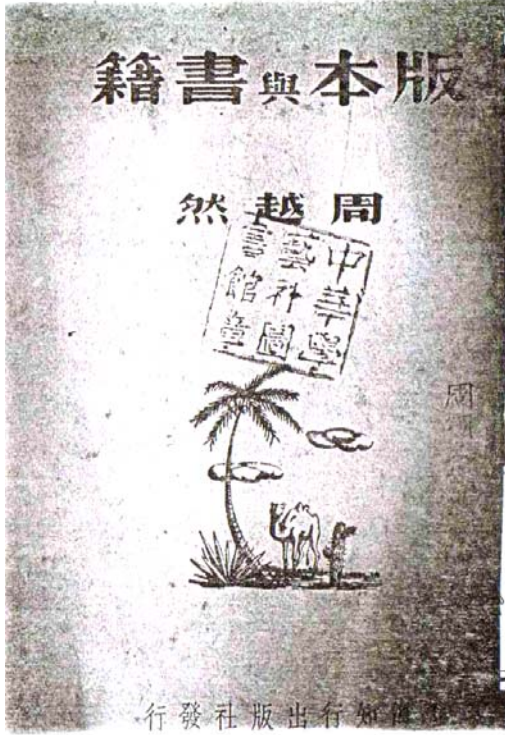 版本與書籍
周越然
中華學
藝社圖
書館章
知行出版社發行